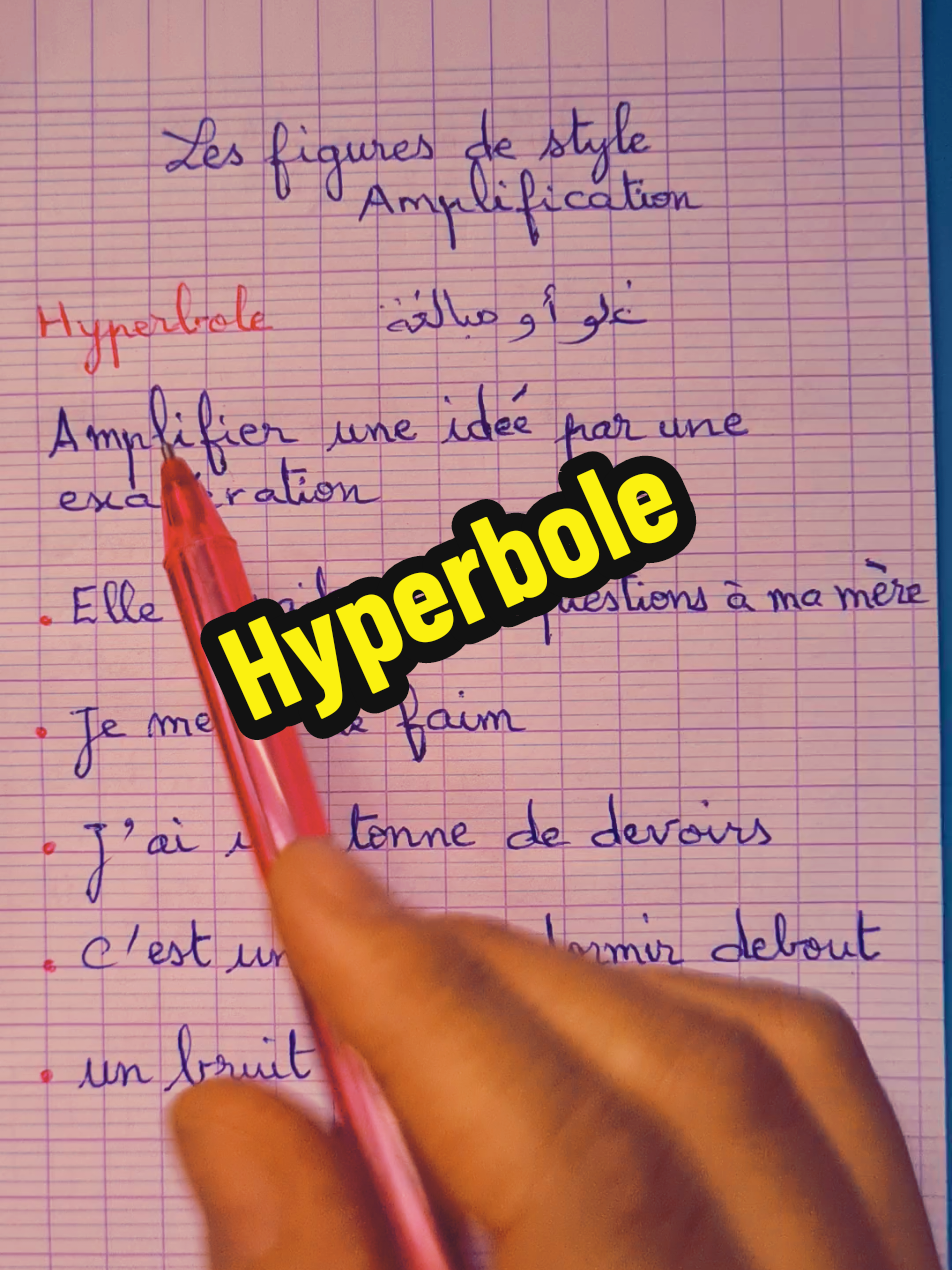 Les figures de style
Amplification
Hyperbole غلو أو مبالغة
Amplifier une idée par une
Hyperbole
Elle questions à ma mère
Je faim
J'ai tonne de devoirs
c'est dormir debout
un bruit